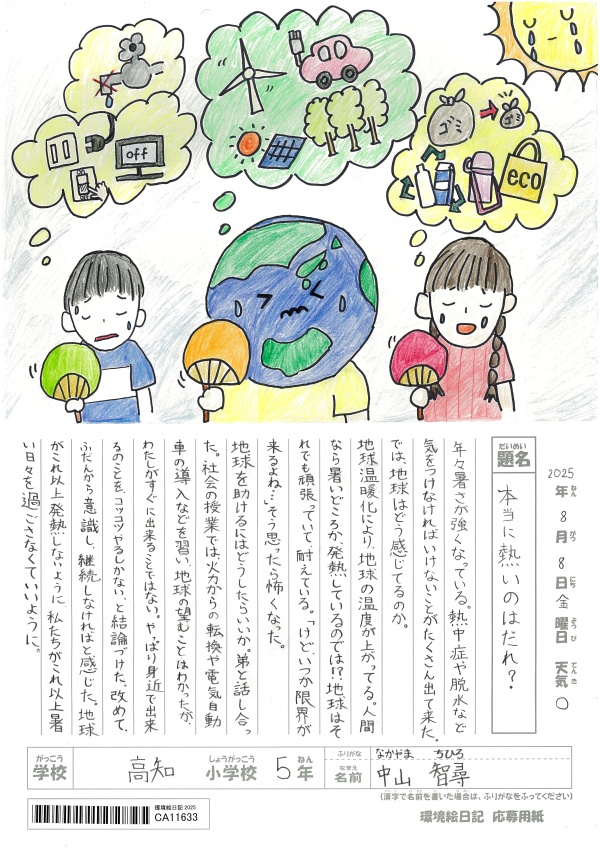 off
ゴミ
ゴミ
eco
2025
年 8月 8日 金曜日 天気 ○
ねん がつ にち ようび てんき
だいめい
題名
本当に熱いのはだれ？
年々暑さが強くなっている。熱中症や脱水など
気をつけなければいけないことがたくさん出て来た。
では、地球はどう感じてるのか。
地球温暖化により、地球の温度が上がってる。人間
なら暑いどころか、発熱しているのでは!?地球はそ
れでも頑張っていて耐えている。「けど、いつか限界が
来るよね…」そう思ったら怖くなった。
地球を助けるにはどうしたらいいか。弟と話し合っ
た。社会の授業では、火力からの転換や電気自動
車の導入などを習い、地球の望むことはわかったが、
わたしがすぐに出来ることではない。やっぱり身近で出来
るのことを、コツコツやるしかない、と結論づけた。改めて、
ふだんから意識し、継続しなければと感じた。地球
がこれ以上発熱しないように、私たちがこれ以上暑
い日々を過ごさなくていいように。
がっこう
学校
高知
しょうがっこう
小学校
5
ねん
年
ふりがな
なかやま ちひろ
なまえ
名前
中山 智尋
(漢字で名前を書いた場合は、ふりがなをふってください)
環境絵日記 2025
CA11633
環境絵日記 応募用紙